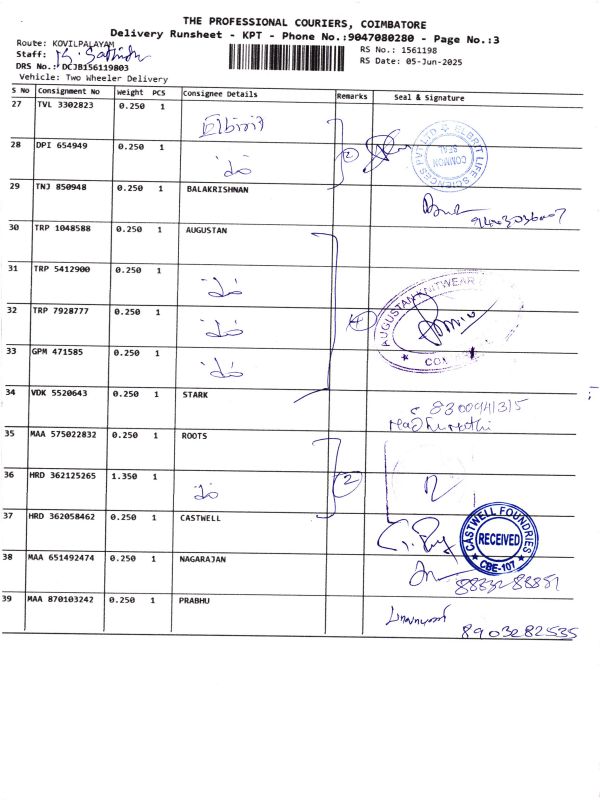 THE PROFESSIONAL COURIERS, COIMBATORE
Delivery Runsheet - KPT - Phone No.:9047080280 - Page No.:3
Route: KOVILPALAYAM
RS No.: 1561198
Staff:
RS Date: 05-Jun-2025
DRS No.: DCJB156119803
Vehicle: Two Wheeler Delivery
S No Consignment No Weight PCS Consignee Details Remarks Seal & Signature
27 TVL 3302823 0.250 1
28 DPI 654949 0.250 1 2 ELBRIT LIFE SCIENCES PVT LTD COMMON SEAL
29 TNJ 850948 0.250 1 BALAKRISHNAN
30 TRP 1048588 0.250 1 AUGUSTAN
31 TRP 5412900 0.250 1
32 TRP 7928777 0.250 1 4 AUGUSTAN KNITWEAR
33 GPM 471585 0.250 1
34 VDK 5520643 0.250 1 STARK
35 MAA 575022832 0.250 1 ROOTS
36 HRD 362125265 1.350 1 2
37 HRD 362058462 0.250 1 CASTWELL CASTWELL FOUNDRIES RECEIVED CBE-107
38 MAA 651492474 0.250 1 NAGARAJAN
39 MAA 870103242 0.250 1 PRABHU
8903282535